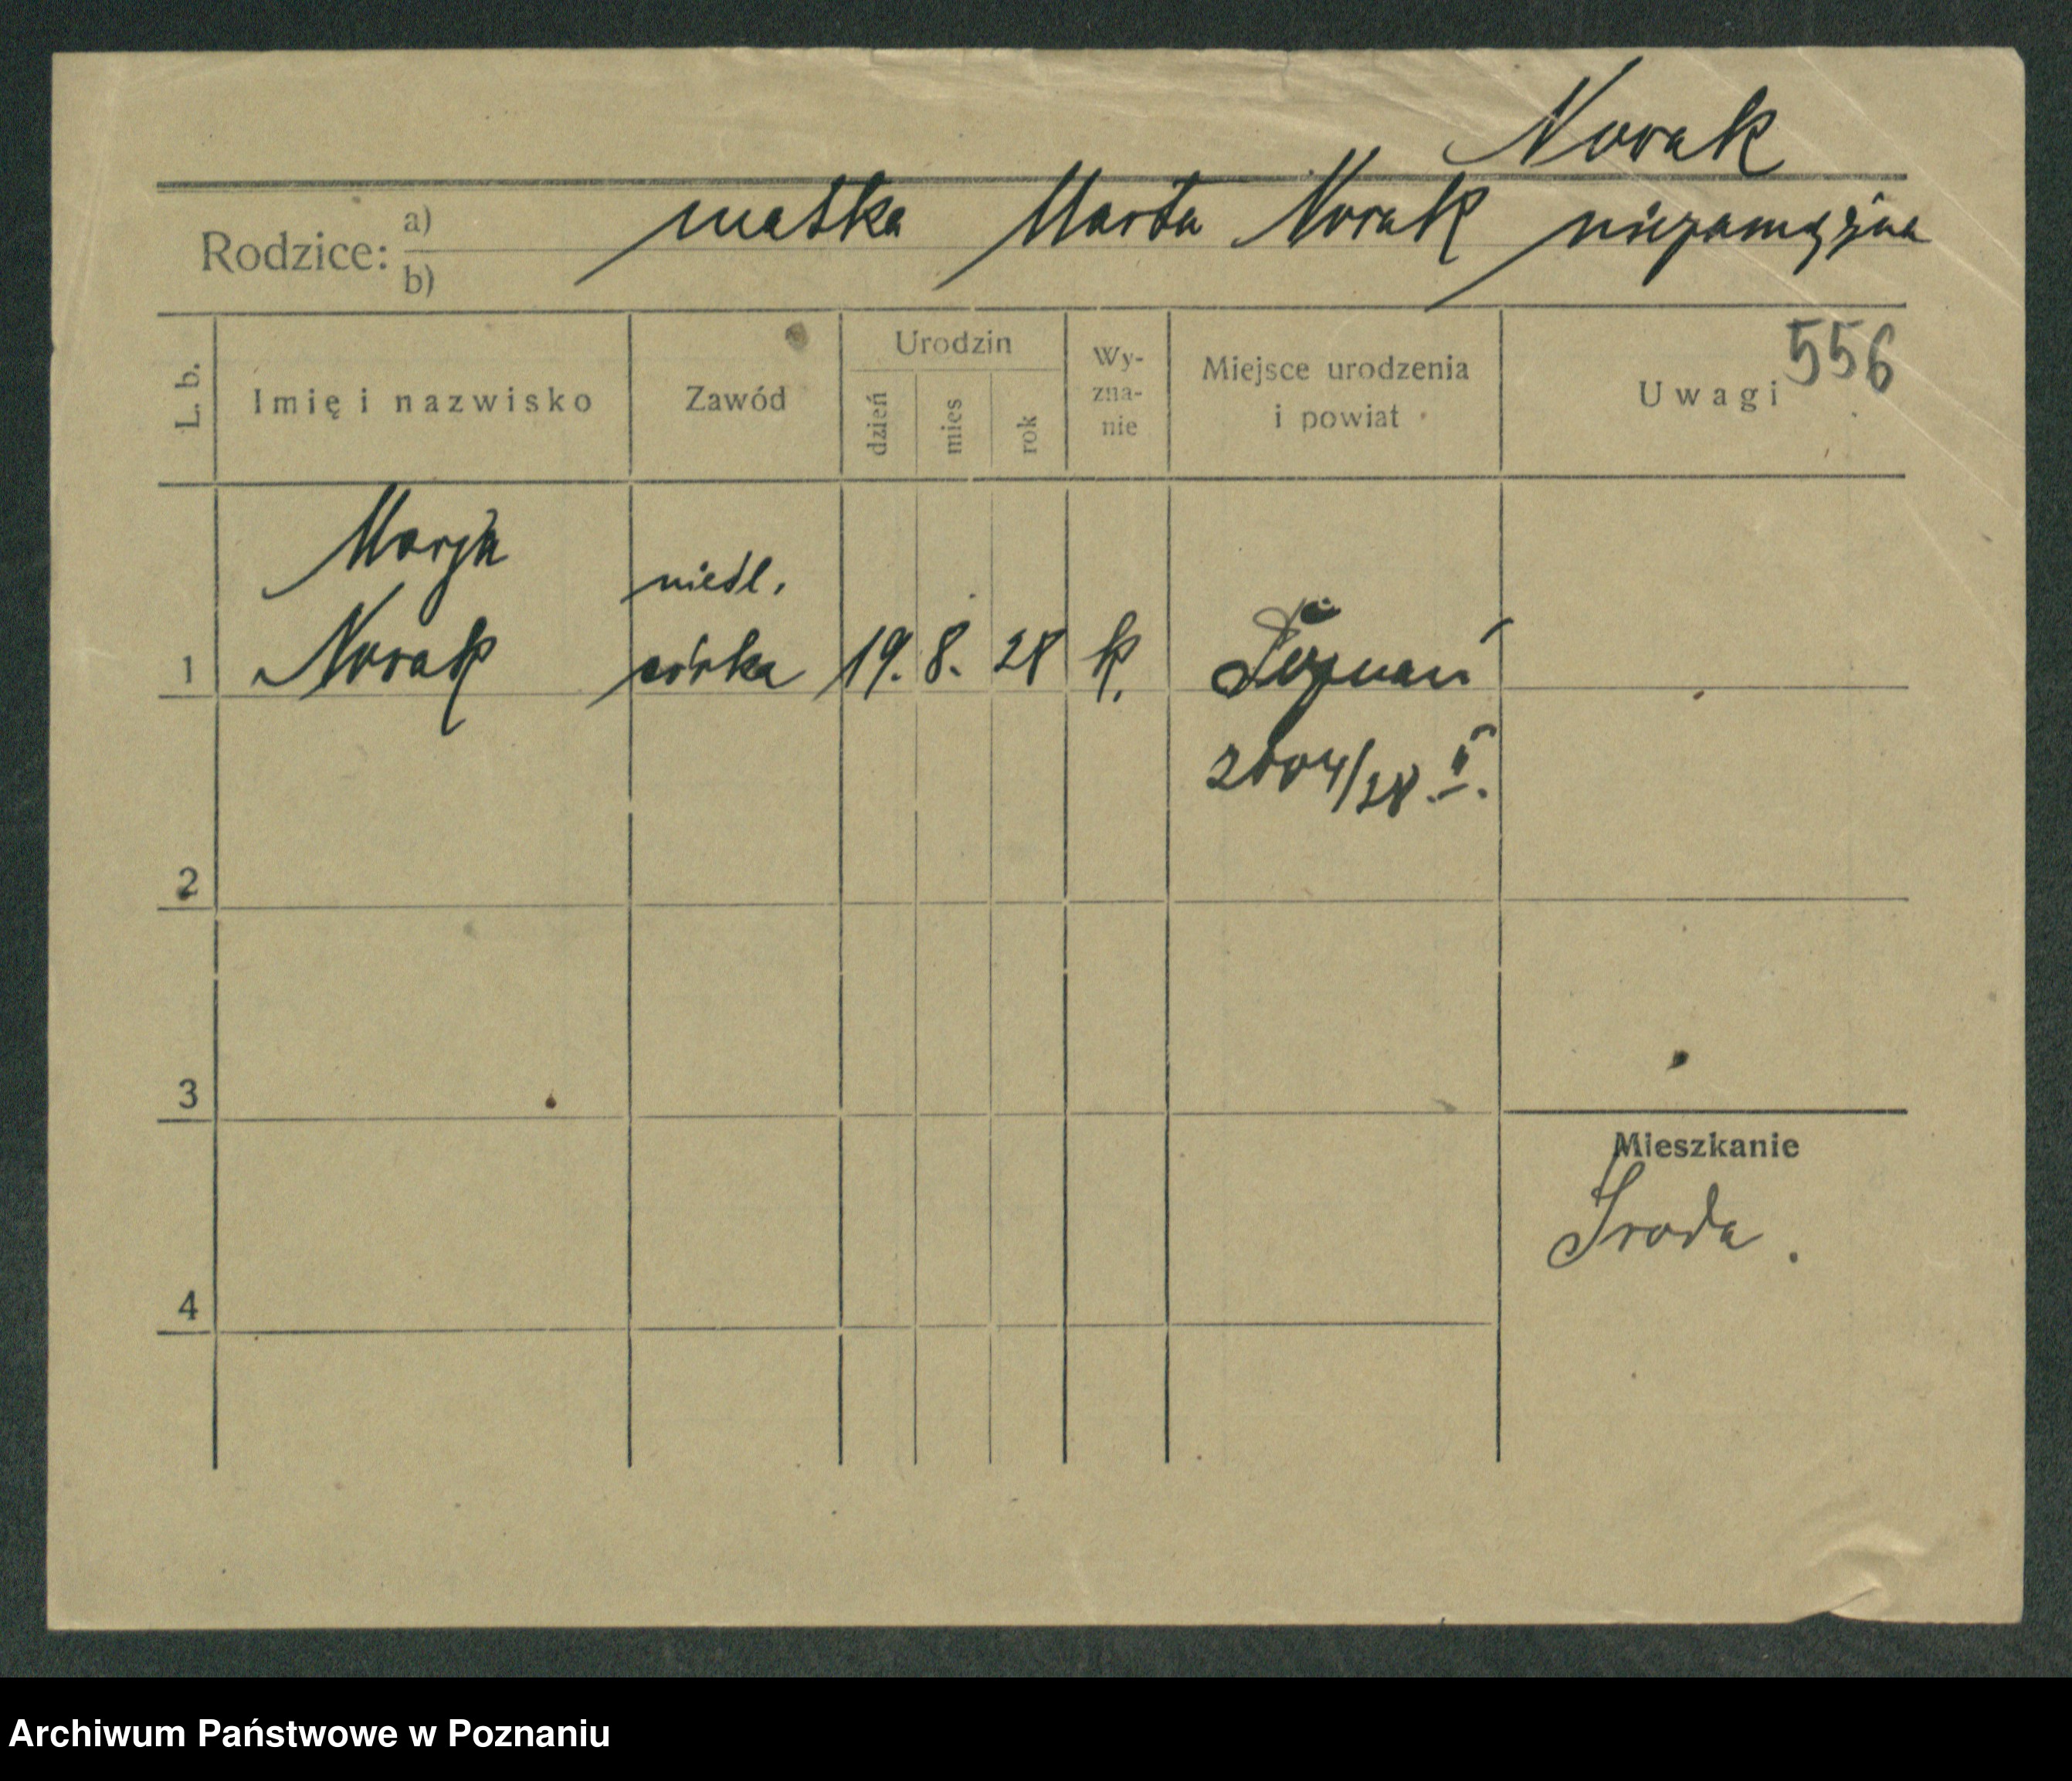 Nowak
Rodzice: a) matka Marta Nowak niezamężna
b)
L. b.
Imię i nazwisko
Zawód
Urodzin
dzień
mies
rok
Wy-
zna-
nie
Miejsce urodzenia
i powiat
Uwagi
556
Marja
nieśl.
1 Nowak córka 19. 8. 28 k. Poznań
2604/28 II.
2
3
Mieszkanie
Środa.
4
Archiwum Państwowe w Poznaniu